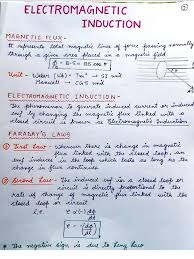 ELECTROMAGNETIC
INDUCTION
MAGNETIC FLUX -
It represents total magnetic lines of force passing normally
through a given area placed in a magnetic field
Unit - Weber (Wb) - Tm² → SI unit
Maxwell → CGS unit
ELECTROMAGNETIC INDUCTION -
The phenomenon to generate induced current or induced
emf by changing the magnetic flux linked with a
closed circuit is known as Electromagnetic Induction
FARADAY'S LAWS
① First Law - Whenever there is change in magnetic
flux linked with the closed loop or circuit, an
emf induces in the loop which lasts as long as the
change in flux continues
② Second Law - The induced emf in a closed loop or
circuit is directly proportional to the
rate of change of magnetic flux linked with the
closed loop or circuit
The negative sign is due to Lenz Law